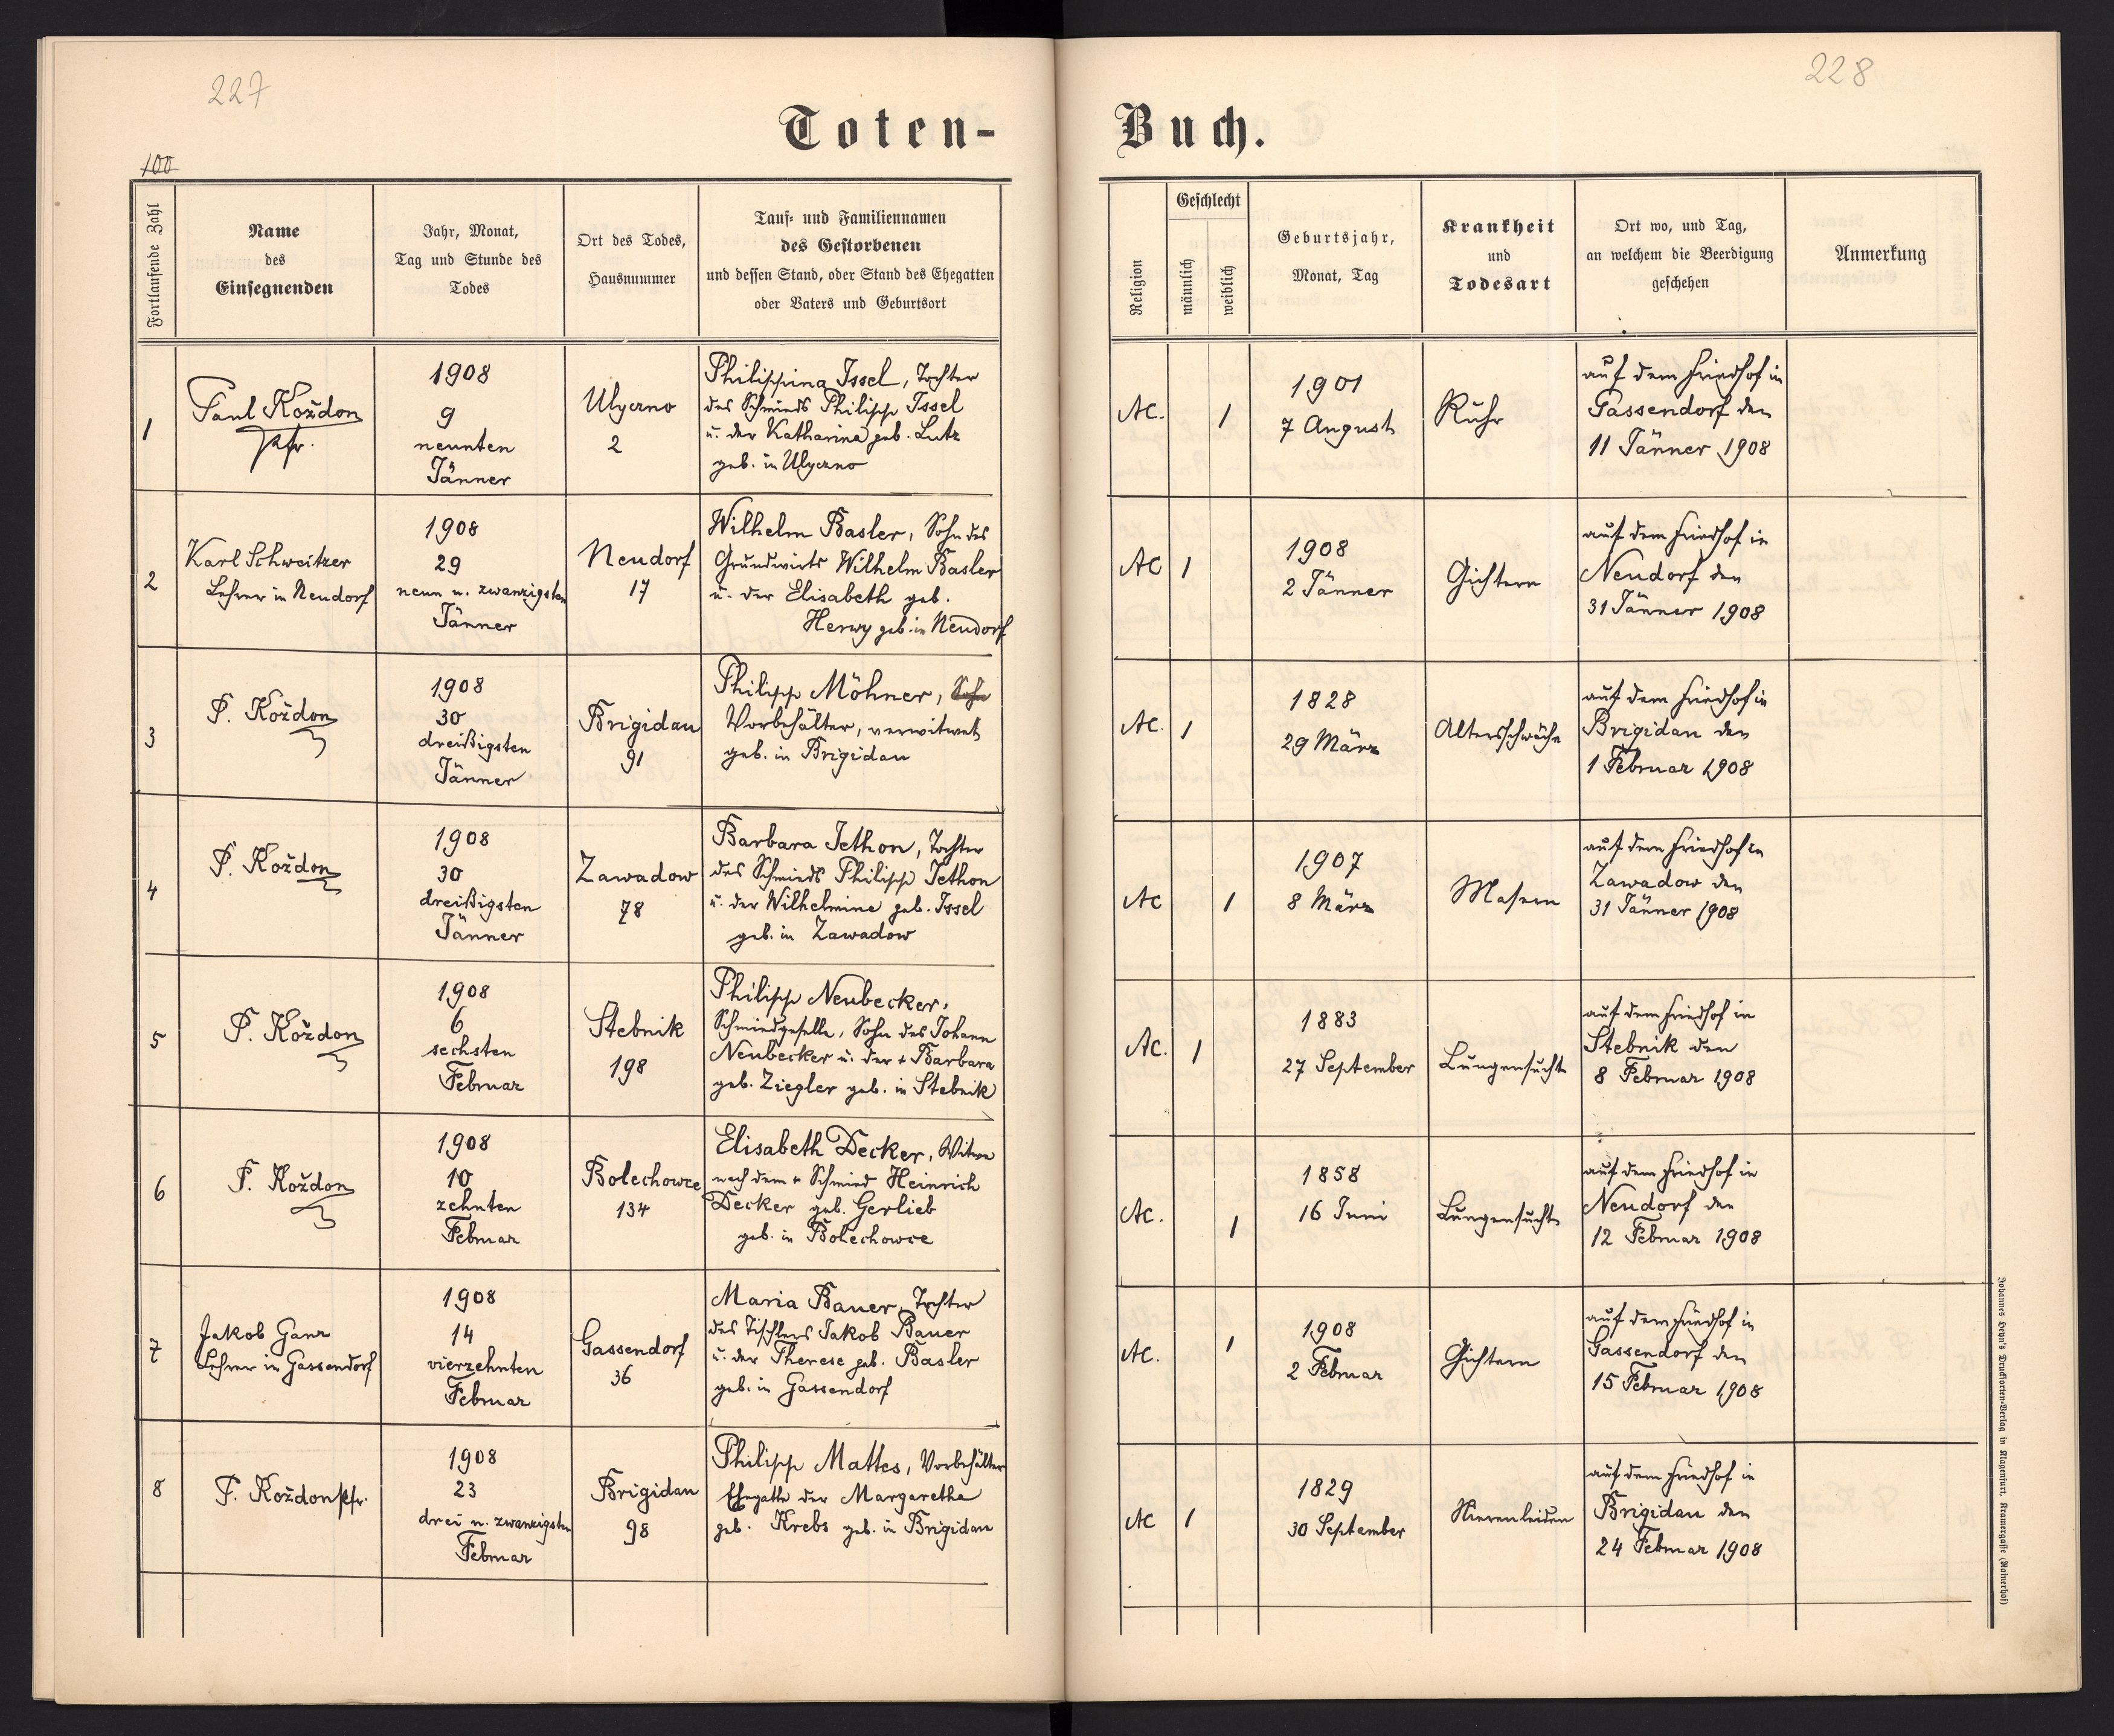 227
228
Toten-
Buch.
100
Fortlaufende Zahl
Name
des
Einsegnenden
Jahr, Monat,
Tag und Stunde des
Todes
Ort des Todes,
Hausnummer
Tauf- und Familiennamen
des Gestorbenen
und dessen Stand, oder Stand des Ehegatten
oder Vaters und Geburtsort
Religion
Geschlecht
männlich
weiblich
Geburtsjahr,
Monat, Tag
Krankheit
und
Todesart
Ort wo, und Tag,
an welchem die Beerdigung
geschehen
Anmerkung
1
Paul Koždon
Pfr.
1908
9
neunten
Jänner
Ulyczno
2
Philippina Issel, Tochter
des Schmieds Philipp Issel
u. der Katharina geb. Lutz
geb. in Ulyczno
AC.
1
1901
7 August
Ruhr
auf dem Friedhof in
Gassendorf den
11 Jänner 1908
2
Karl Schweitzer
Lehrer in Neudorf
1908
29
neun u. zwanzigsten
Jänner
Neudorf
17
Wilhelm Basler, Sohn des
Grundwirts Wilhelm Basler
u. der Elisabeth geb.
Herwy geb. in Neudorf
AC
1
1908
2 Jänner
Gichtern
auf dem Friedhof in
Neudorf den
31 Jänner 1908
3
P. Koždon
1908
30
dreißigsten
Jänner
Brigidau
91
Philipp Möhner, Sohn
Vorbehälter, verwitwet
geb. in Brigidau
AC.
1
1828
29 März
Altersschwäche
auf dem Friedhof in
Brigidau den
1 Februar 1908
4
P. Koždon
1908
30
dreißigsten
Jänner
Zawadow
78
Barbara Jethon, Tochter
des Schmieds Philipp Jethon
u. der Wilhelmine geb. Issel
geb. in Zawadow
AC
1
1907
8 März
Masern
auf dem Friedhof in
Zawadow den
31 Jänner 1908
5
P. Koždon
1908
6
sechsten
Februar
Stebnik
198
Philipp Neubecker,
Schmiedgeselle, Sohn des Johann
Neubecker u. der + Barbara
geb. Ziegler geb. in Stebnik
AC.
1
1883
27 September
Lungensucht
auf dem Friedhof in
Stebnik den
8 Februar 1908
6
P. Koždon
1908
10
zehnten
Februar
Bolechowce
134
Elisabeth Decker, Witwe
nach dem + Schmied Heinrich
Decker geb. Gerlieb
geb. in Bolechowce
AC.
1
1858
16 Juni
Lungensucht
auf dem Friedhof in
Neudorf den
12 Februar 1908
7
Jakob Ganz
Lehrer in Gassendorf
1908
14
vierzehnten
Februar
Gassendorf
36
Maria Bauer, Tochter
des Tischlers Jakob Bauer
u. der Therese geb. Basler
geb. in Gassendorf
AC.
1
1908
2 Februar
Gichtern
auf dem Friedhof in
Gassendorf den
15 Februar 1908
8
P. Koždon Pfr.
1908
23
drei u. zwanzigsten
Februar
Brigidau
98
Philipp Mattes, Vorbehälter
Ehegatte der Margaretha
geb. Krebs geb. in Brigidau
AC
1
1829
30 September
Nierenleiden
auf dem Friedhof in
Brigidau den
24 Februar 1908
Johannes Heyn's Drucksorten-Verlag in Klagenfurt, Kramergasse (Rainerhof)